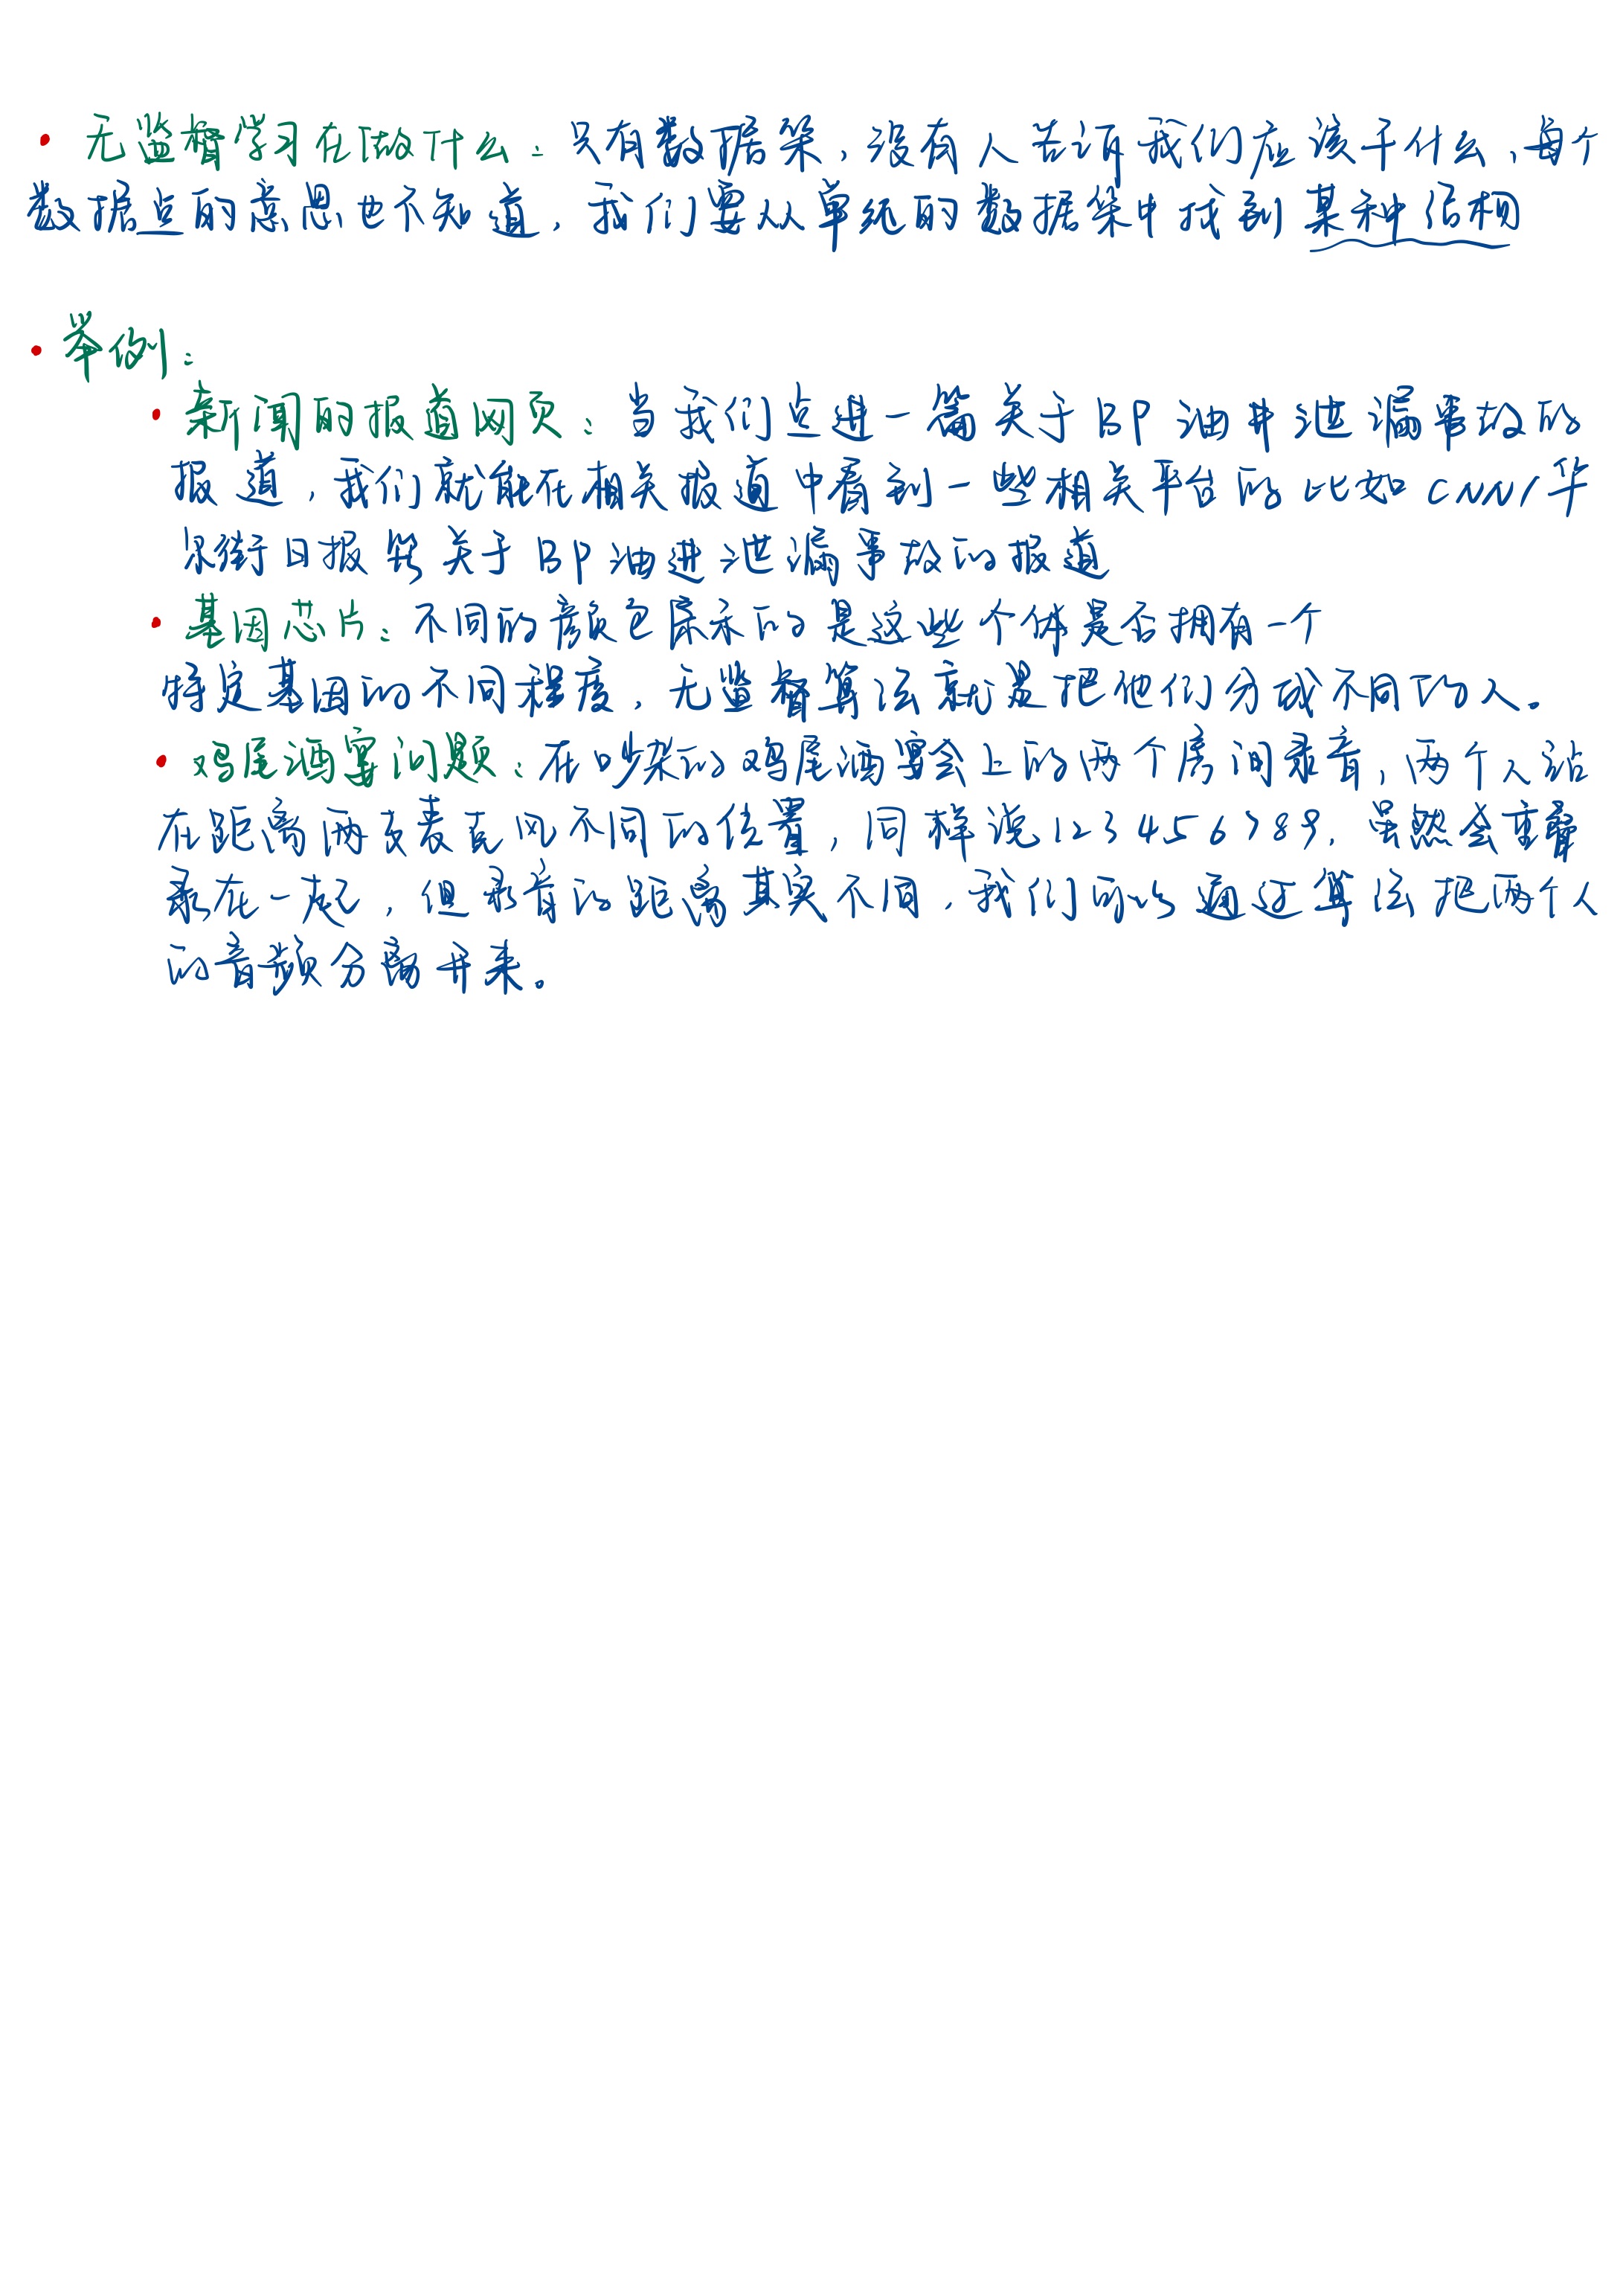 · 无监督学习在做什么：只有数据集，没有人告诉我们应该干什么，每个
数据点的意思也不知道，我们要从单纯的数据集中找到某种结构
· 举例：
· 新闻的报道网页：当我们点进一篇关于BP油井泄漏事故的
报道，我们就能在相关报道中看到一些相关平台的比如CNN/华
尔街日报等关于BP油进泄漏事故的报道
· 基因芯片：不同的颜色展示的是这些个体是否拥有一个
特定基因的不同程度，无监督算法就是把他们分成不同的人。
· 鸡尾酒宴问题：在吵杂的鸡尾酒宴会上的两个房间录音，两个人站
在距离两支麦克风不同的位置，同样说123456789，虽然会重叠
录在一起，但录音的距离其实不同，我们可以通过算法把两个人
的音频分离开来。